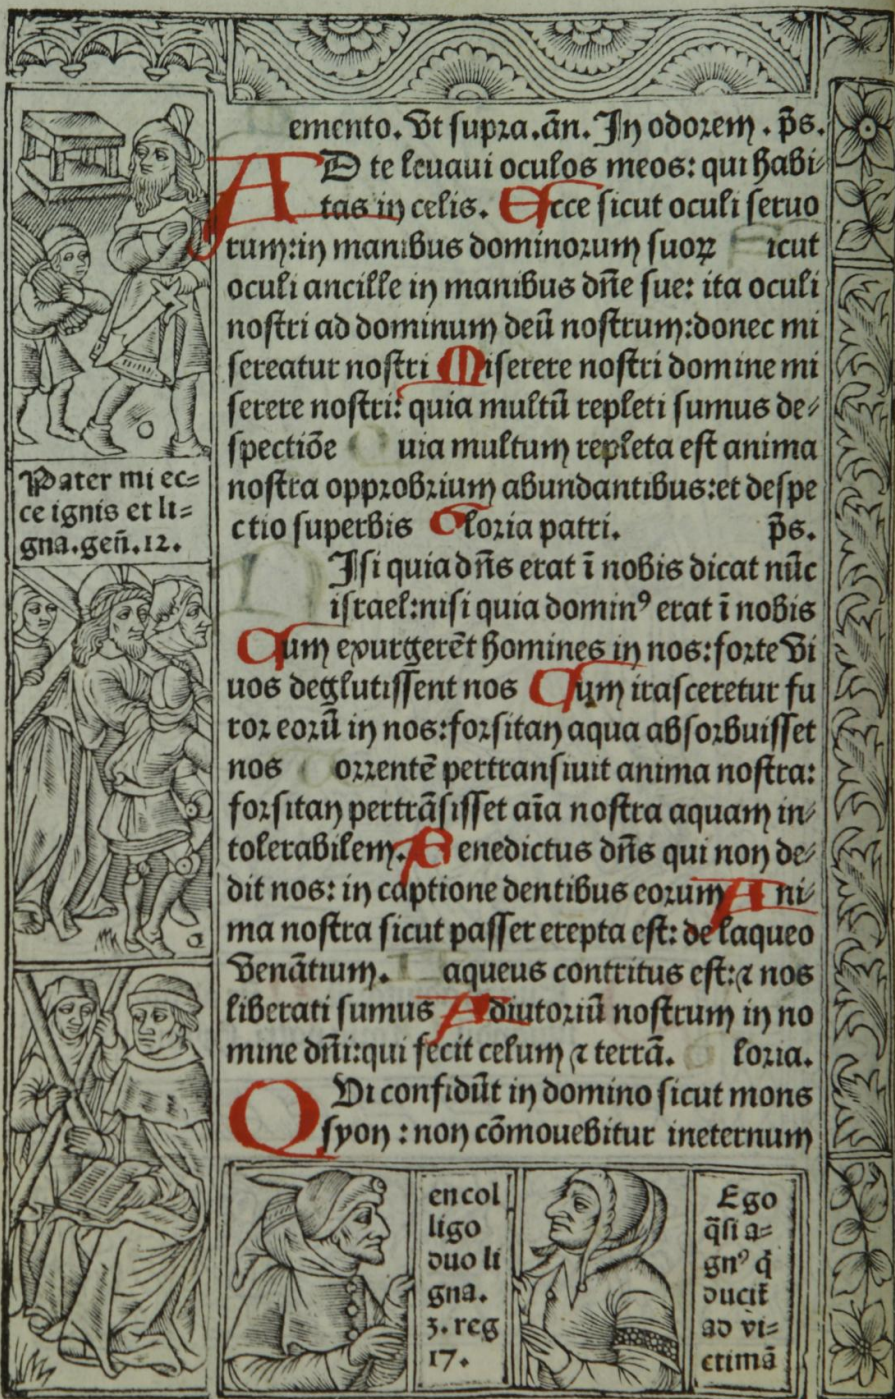 emento. Vt supra. ãn. In odorem. p̃s.
AD te leuaui oculos meos: qui habi⸗
tas in celis. Ecce sicut oculi seruo
rum: in manibus dominorum suoꝝ icut
oculi ancille in manibus dñe sue: ita oculi
nostri ad dominum deũ nostrum: donec mi
sereatur nostri Miserere nostri domine mi
serere nostri: quia multũ repleti sumus de⸗
spectiõe uia multum repleta est anima
nostra opprobrium abundantibus: et despe
ctio superbis Gloria patri. p̃s.
NIsi quia dñs erat ĩ nobis dicat nũc
israel: nisi quia dominꝰ erat ĩ nobis
Cum exurgerẽt homines in nos: forte vi
uos deglutissent nos Cum irasceretur fu
ror eorũ in nos: forsitan aqua absorbuisset
nos orrentẽ pertransiuit anima nostra:
forsitan pertrãsisset aĩa nostra aquam in⸗
tolerabilem. Benedictus dñs qui non de⸗
dit nos: in captione dentibus eorum Ani⸗
ma nostra sicut passer erepta est: de laqueo
venãtium. aqueus contritus est: ⁊ nos
liberati sumus Adiutoriũ nostrum in no
mine dñi: qui fecit celum ⁊ terrã. loria.
QVi confidũt in domino sicut mons
syon: non cõmouebitur ineternum
Pater mi ec⸗
ce ignis et li⸗
gna. geñ. 12.
en col
ligo
duo li
gna.
3. reg
17.
Ego
q̃si a⸗
gnꝰ q̇
ducit̃
ad vi⸗
ctimã